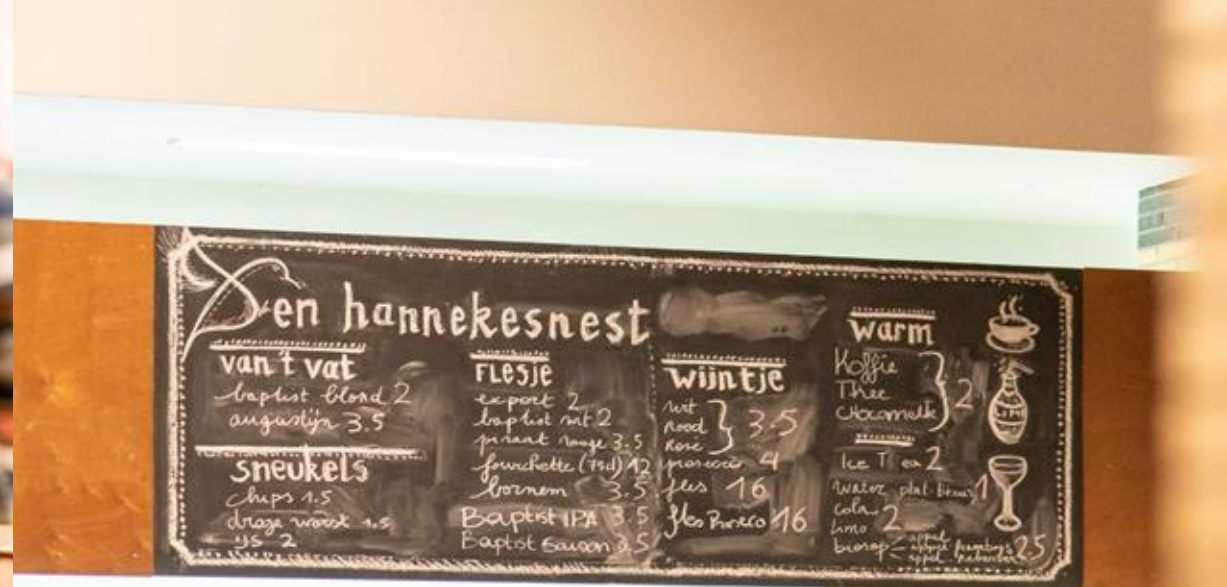 Den hannekesnest
van't vat
baptist blond 2
augustijn 3.5
sneukels
chips 1.5
droge worst 1.5
ijs 2
FLESJE
export 2
baptist wit 2
3.5
fourchette (75cl) 12
bornem 3.5
Baptist IPA 3.5
Baptist Saison 3.5
wijntje
wit
rood
Rose
3.5
prosecco 4
fles 16
fles Prosecco 16
warm
Koffie
Thee
Chocomelk
2
Ice T 2
water plat-bruis 1
cola
limo
2
biosap
appel
2.5
LIMO